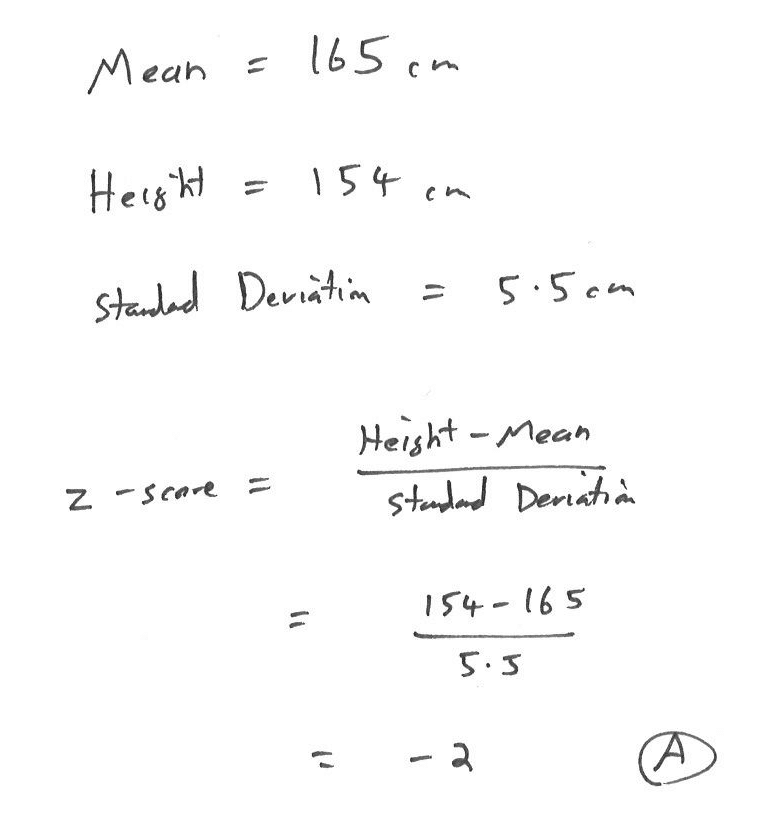 Mean = 165 cm
Height = 154 cm
Standard Deviation = 5.5 cm
z-score = Height - Mean / Standard Deviation
= 154 - 165 / 5.5
= -2 A